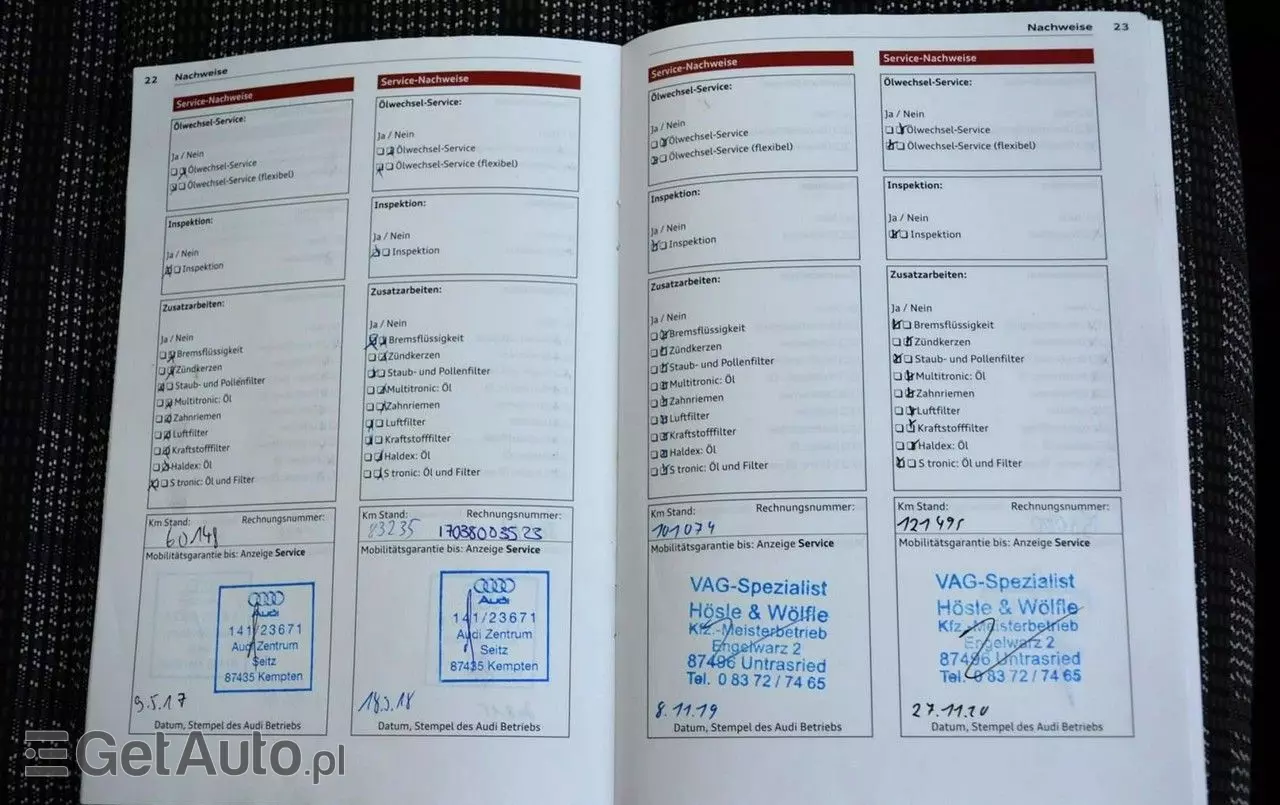 22 Nachweise
Service-Nachweise
Ölwechsel-Service:
Ja / Nein
Ölwechsel-Service
Ölwechsel-Service (flexibel)
Inspektion:
Ja / Nein
Inspektion
Zusatzarbeiten:
Ja / Nein
Bremsflüssigkeit
Zündkerzen
Staub- und Pollenfilter
Multitronic: Öl
Zahnriemen
Luftfilter
Kraftstofffilter
Haldex: Öl
S tronic: Öl und Filter
Km Stand: Rechnungsnummer:
60148
Mobilitätsgarantie bis: Anzeige Service
Audi
141/23671
Audi Zentrum
Seitz
87435 Kempten
9.5.17
Datum, Stempel des Audi Betriebs
Service-Nachweise
Ölwechsel-Service:
Ja / Nein
Ölwechsel-Service
Ölwechsel-Service (flexibel)
Inspektion:
Ja / Nein
Inspektion
Zusatzarbeiten:
Ja / Nein
Bremsflüssigkeit
Zündkerzen
Staub- und Pollenfilter
Multitronic: Öl
Zahnriemen
Luftfilter
Kraftstofffilter
Haldex: Öl
S tronic: Öl und Filter
Km Stand: Rechnungsnummer:
83235 17038003523
Mobilitätsgarantie bis: Anzeige Service
Audi
141/23671
Audi Zentrum
Seitz
87435 Kempten
Datum, Stempel des Audi Betriebs
Nachweise 23
Service-Nachweise
Ölwechsel-Service:
Ja / Nein
Ölwechsel-Service
Ölwechsel-Service (flexibel)
Inspektion:
Ja / Nein
Inspektion
Zusatzarbeiten:
Ja / Nein
Bremsflüssigkeit
Zündkerzen
Staub- und Pollenfilter
Multitronic: Öl
Zahnriemen
Luftfilter
Kraftstofffilter
Haldex: Öl
S tronic: Öl und Filter
Km Stand: Rechnungsnummer:
101074
Mobilitätsgarantie bis: Anzeige Service
VAG-Spezialist
Hösle & Wölfle
Kfz.-Meisterbetrieb
Engelwarz 2
87496 Untrasried
Tel. 0 83 72 / 74 65
8.11.19
Datum, Stempel des Audi Betriebs
Service-Nachweise
Ölwechsel-Service:
Ja / Nein
Ölwechsel-Service
Ölwechsel-Service (flexibel)
Inspektion:
Ja / Nein
Inspektion
Zusatzarbeiten:
Ja / Nein
Bremsflüssigkeit
Zündkerzen
Staub- und Pollenfilter
Multitronic: Öl
Zahnriemen
Luftfilter
Kraftstofffilter
Haldex: Öl
S tronic: Öl und Filter
Km Stand: Rechnungsnummer:
121495
Mobilitätsgarantie bis: Anzeige Service
VAG-Spezialist
Hösle & Wölfle
Kfz.-Meisterbetrieb
Engelwarz 2
87496 Untrasried
Tel. 0 83 72 / 74 65
27.11.20
Datum, Stempel des Audi Betriebs
GetAuto.pl